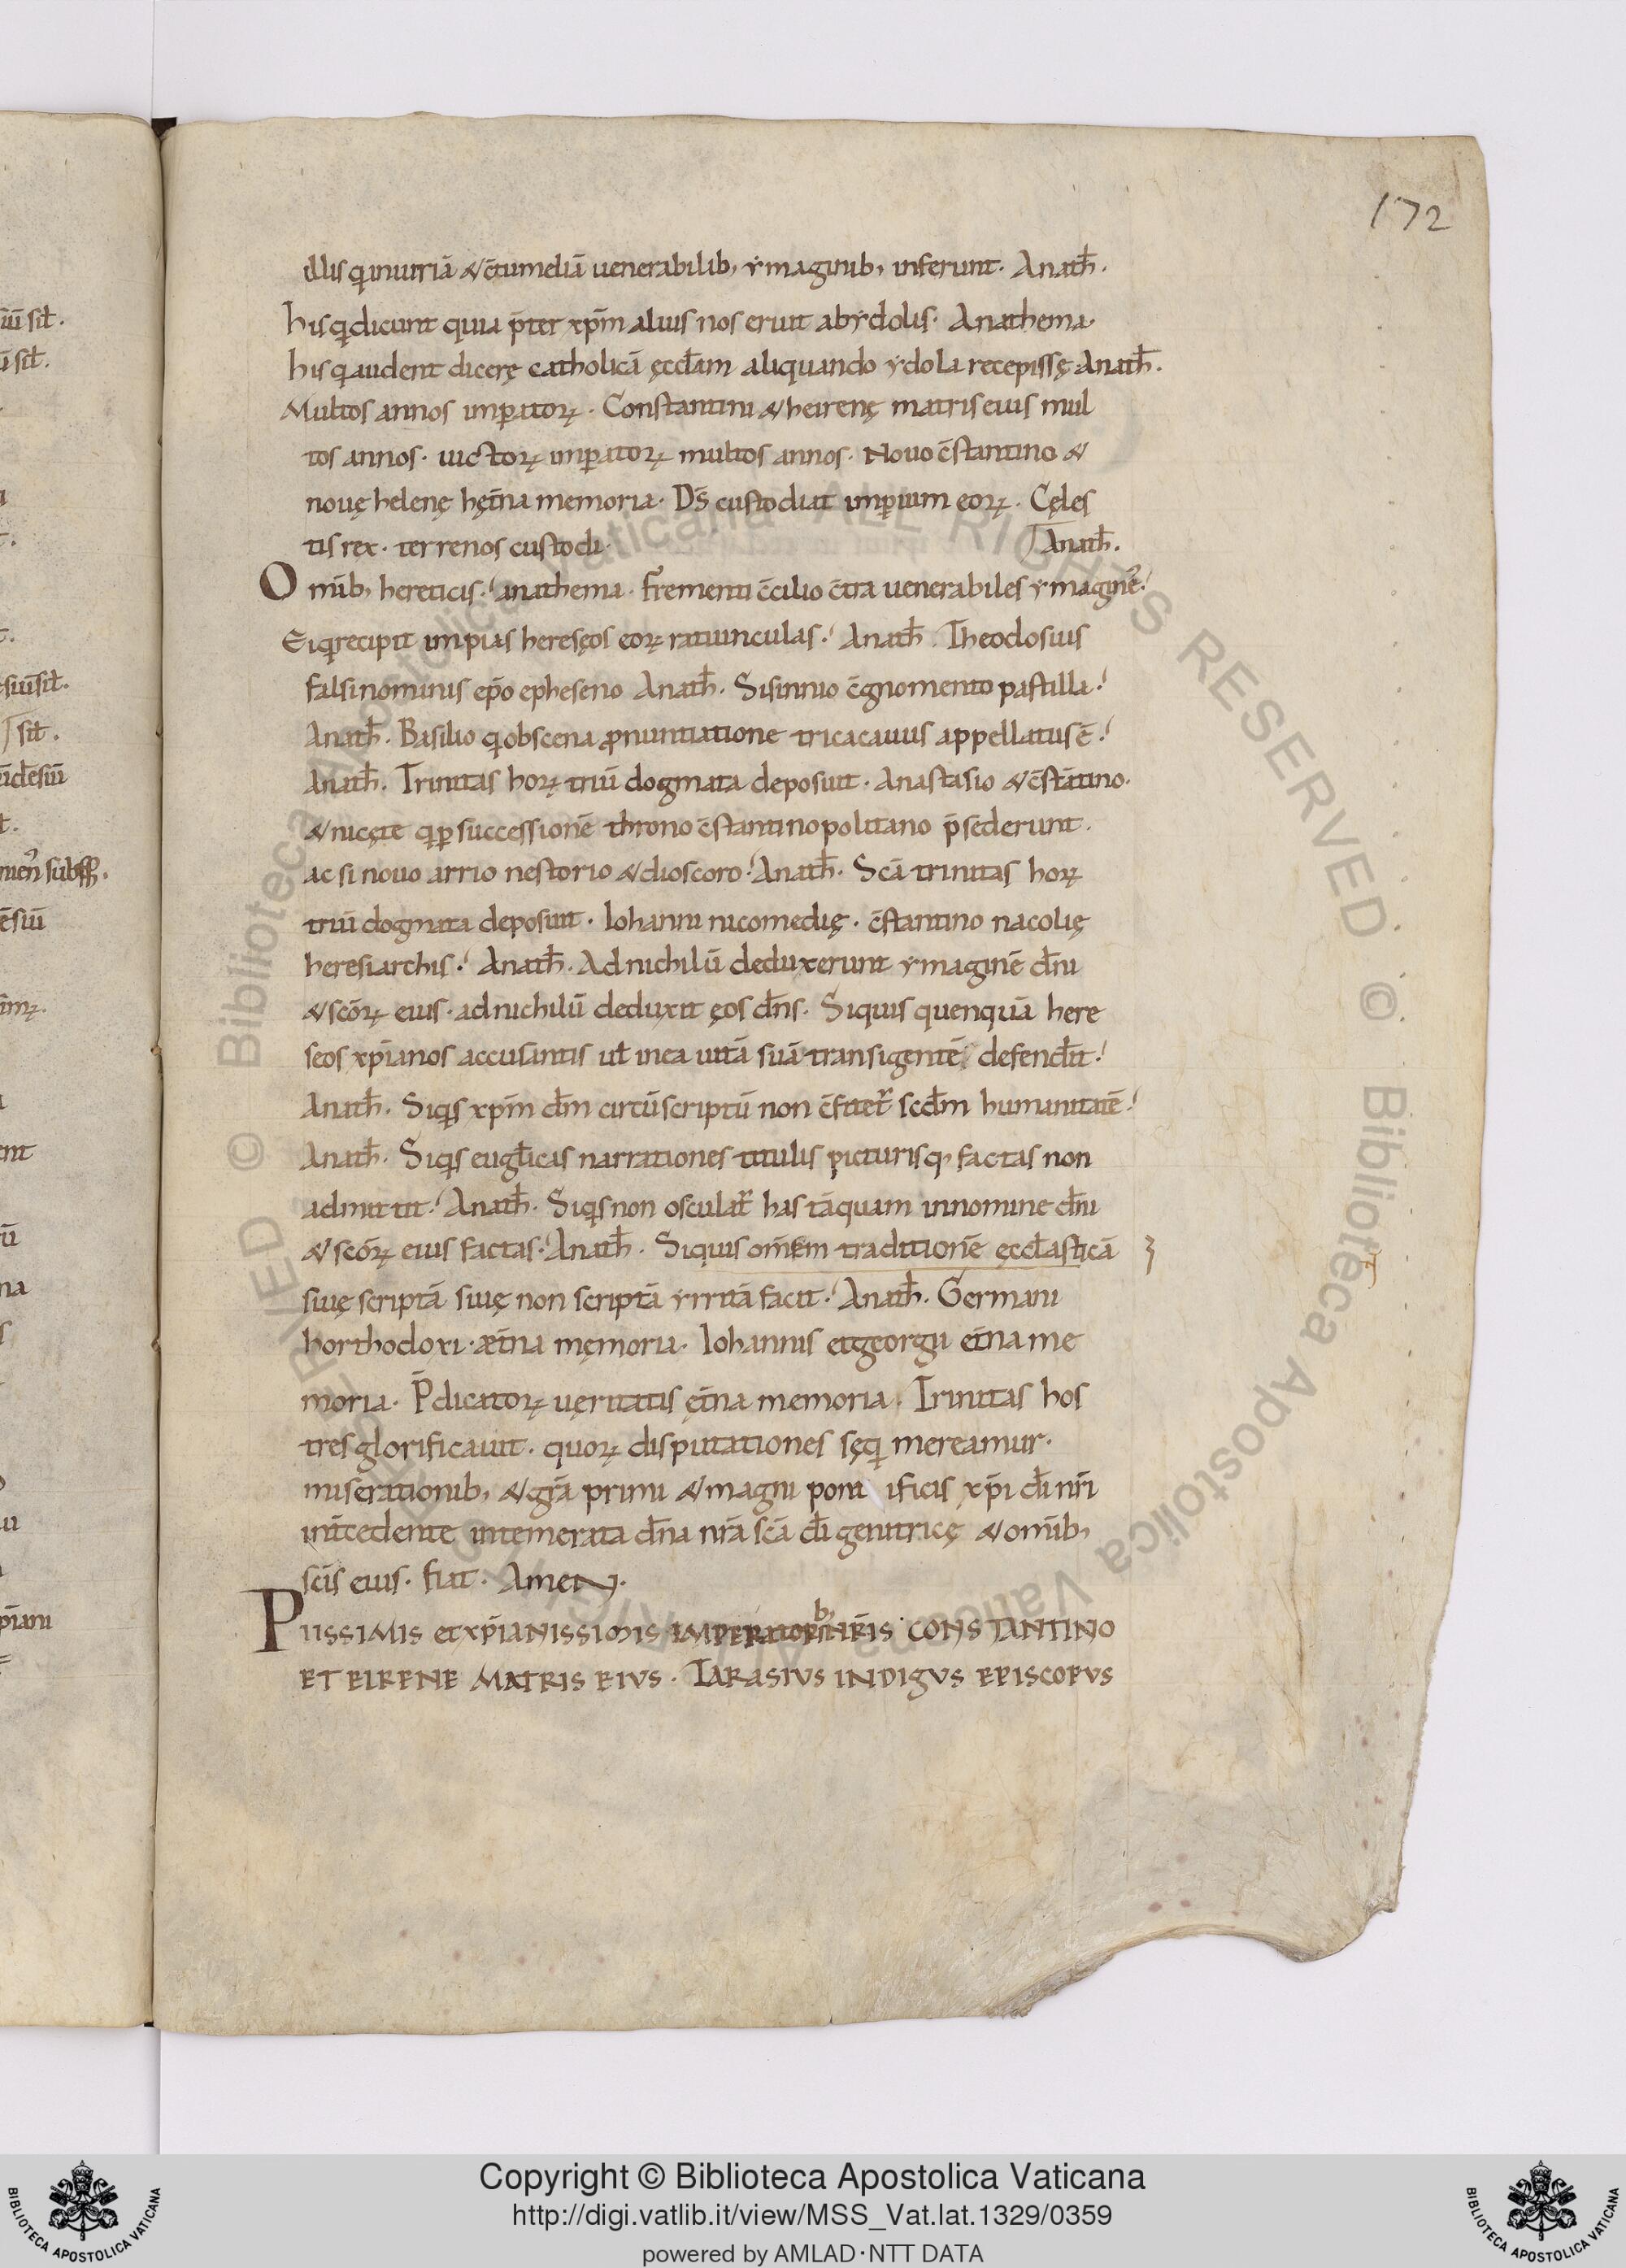 172
illis q iniuriā & c̄tumeliā uenerabilib, ymaginib, inferunt. Anath̄.
his q dicunt quia p̄ter xp̄m alius nos eruit ab ydolis. Anathema.
his q audent dicerę catholicā ęccl̄am aliquando ydola recepissę Anath̄.
Multos annos imꝑatoꝝ. Constantini & heirenę matris eius mul
tos annos. uictoꝝ imꝑatoꝝ multos annos. Nouo c̄stantino &
nouę helenę hęt̄na memoria. Ds̄ custodiat imꝑium eoꝝ. Cęles
tis rex. terrenos custodi. Anath̄.
Om̄ib, hereticis. anathema. Frementi c̄cilio c̄tra uenerabiles ymagines.
Ei q recipit impias heresęos eoꝝ ratiunculas. Anath̄. Theodosius
falsi nominis ep̄o epheseno Anath̄. Sisinnio c̄gnomento pastilla.
Anath̄. Basilio q obscena ꝓnuntiatione tricacauus appellatus ē.
Anath̄. Trinitas hoꝝ triū dogmata deposuit. Anastasio & c̄stātino.
& nicęte q ꝑ successionē throno c̄stantinopolitano p̄sederunt.
ac si nouo arrio nestorio & dioscoro. Anath̄. Sc̄a trinitas hoꝝ
triū dogmata deposuit. Iohanni nicomedię. c̄stantino nacolię
heresiarchis. Anath̄. Ad nichilū deduxerunt ymaginē dn̄i
& sc̄oꝝ eius. ad nichilū deduxit ęos dn̄s. Siquis quenquā here
seos xp̄ianos accusantis ut̄ in ea uitā suā transigentē defend̄it.
Anath̄. Siqis xp̄m dm̄ circūscriptū non c̄fitet̄ scd̄m humanitatē.
Anath̄. Siqis eugl̄icas narrationes titulis picturisq, factas non
admittit. Anath̄. Siqis non osculat̄ has tāquam in nomine dn̄i
& sc̄oꝝ eius factas. Anath̄. Siquis om̄em traditionē ęccl̄asticā
siuę scriptā siuę non scriptā yrritā facit. Anath̄. Germani
horthodoxi. æt̄na męmoria. Iohannis et georgii et̄na me
moria. P̄dicatoꝝ uęritatis ęt̄na memoria. Trinitas hos
tres glorificauit. quoꝝ disputationes sęq mereamur.
miserationib, & gr̄a primi & magni pont ificis xp̄i dī nr̄i
int̄cedente intemerata dn̄a nr̄a sc̄a dī genitricę & om̄ib,
sc̄is eius. fiat. Amen.
Piissimis et xp̄ianissimis imperatorib nr̄is constantino
et eirene matris eius. Tarasius indigus episcopus
Copyright © Biblioteca Apostolica Vaticana
http://digi.vatlib.it/view/MSS_Vat.lat.1329/0359
powered by AMLAD·NTT DATA